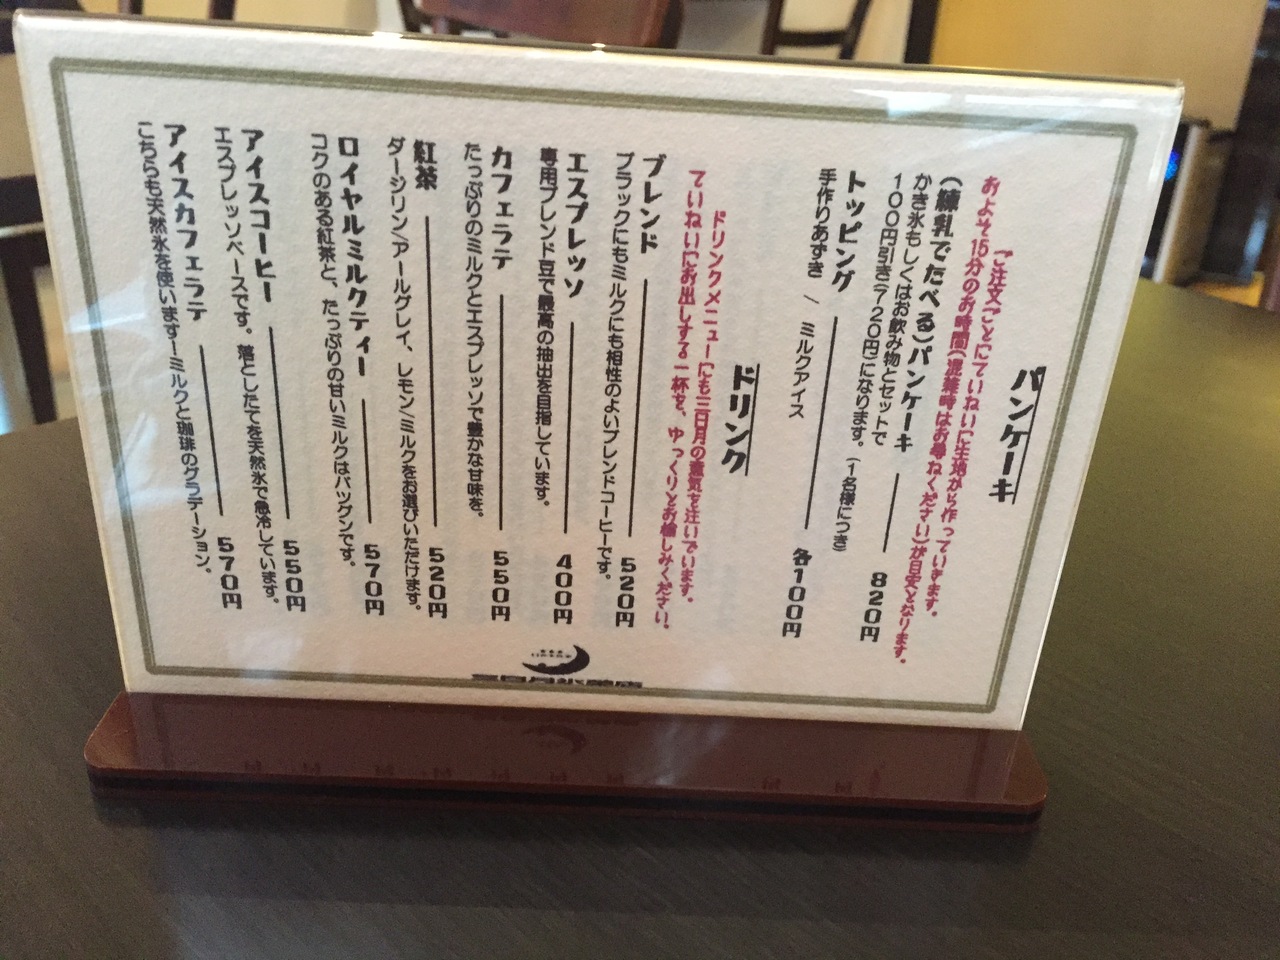 パンケーキ
ご注文ごとにていねいに生地から作っていきます。
およそ15分のお時間(混雑時はお尋ねください)が目安となります。
(練乳でたべる)パンケーキ 820円
かき氷もしくはお飲み物とセットで
100円引き(720円)になります。(1名様につき)
トッピング 各100円
手作りあずき / ミルクアイス
ドリンク
ドリンクメニューにも三日月の意気を注いでいます。
ていねいにお出しする一杯を、ゆっくりとお愉しみください。
ブレンド 520円
ブラックにもミルクにも相性のよいブレンドコーヒーです。
エスプレッソ 400円
専用ブレンド豆で最高の抽出を目指しています。
カフェラテ 550円
たっぷりのミルクとエスプレッソで豊かな甘味を。
紅茶 520円
ダージリン/アールグレイ、レモン/ミルクをお選びいただけます。
ロイヤルミルクティー 570円
コクのある紅茶と、たっぷりの甘いミルクはバツグンです。
アイスコーヒー 550円
エスプレッソベースです。落としたてを天然氷で急冷しています。
アイスカフェラテ 570円
こちらも天然氷を使います—ミルクと珈琲のグラデーション。